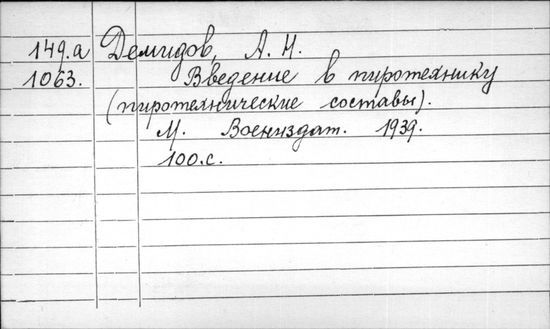 149.а Демидов, А. Н.
1063. Введение в пиротехнику
(пиротехнические составы).
М. Воениздат. 1939.
100.с.